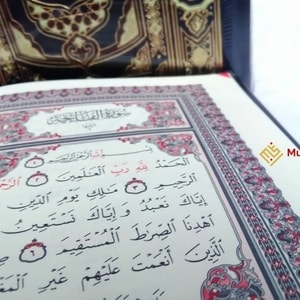 سورة الفاتحة
بسم الله الرحمن الرحيم
الحمد لله رب العلمين الرحمن
الرحيم ملك يوم الدين
إياك نعبد وإياك نستعين
اهدنا الصرط المستقيم
الذين أنعمت عليهم غير المغ
Mu